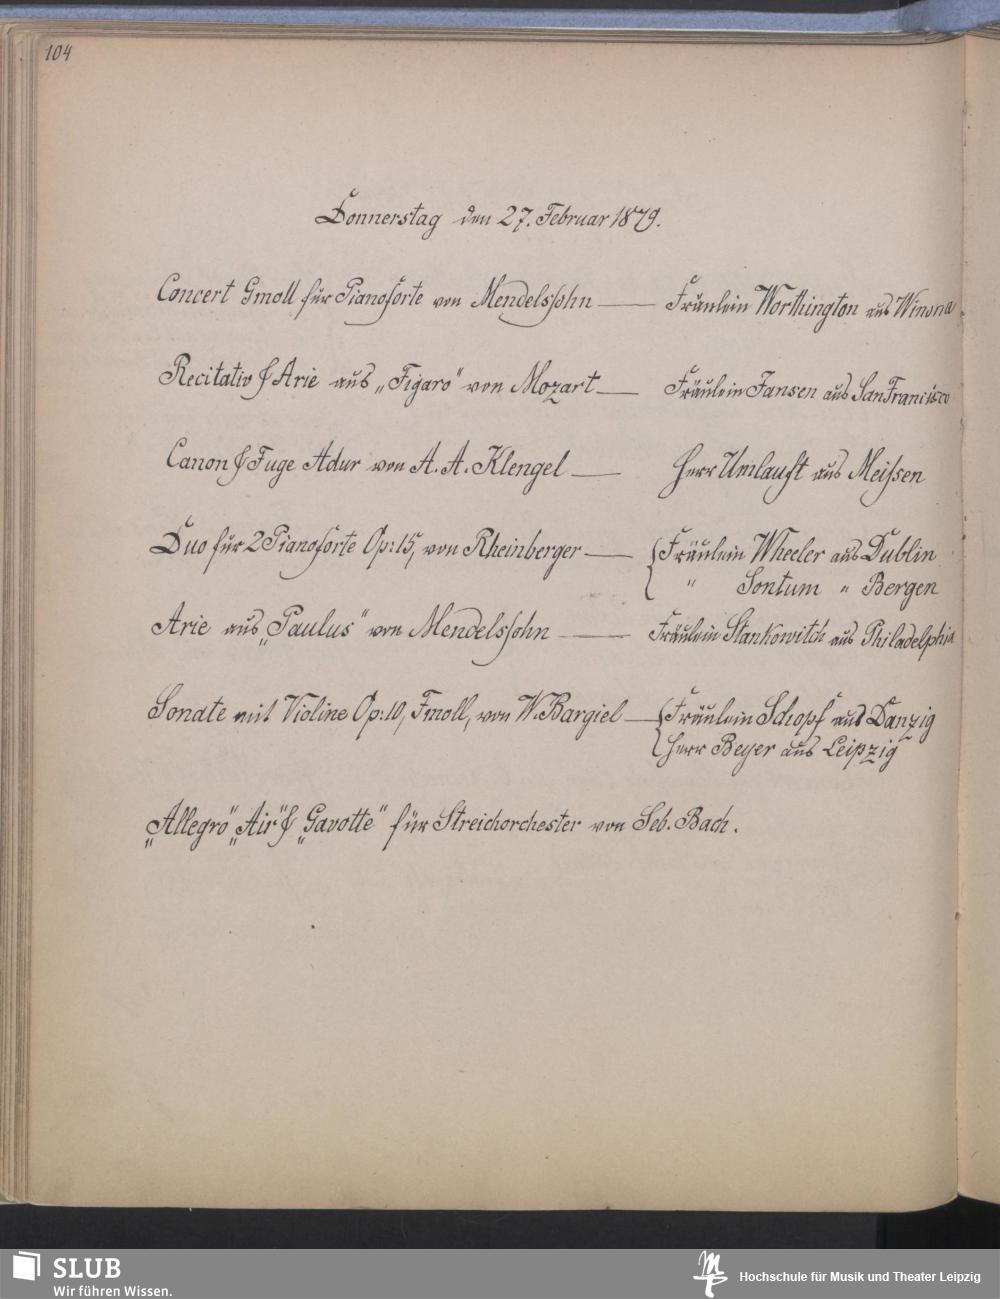 104
Donnerstag den 27. Februar 1879.
Concert Gmoll für Pianoforte von Mendelsſohn — Fräulein Worthington aus Winona
Recitativ & Arie aus „Figaro" von Mozart — Fräulein Jansen aus San Francisco
Canon & Fuge Adur von A. A. Klengel — Herr Umlauft aus Meiſsen
Duo für 2 Pianoforte Op: 15, von Rheinberger — Fräulein Wheeler aus Dublin
" Sontum " Bergen
Arie aus „Paulus" von Mendelsſohn — Fräulein Stankowitch aus Philadelphia
Sonate mit Violine Op: 10, Fmoll, von W. Bargiel — Fräulein Schopf aus Danzig
Herr Beyer aus Leipzig
„Allegro" „Air" & „Gavotte" für Streichorchester von Seb. Bach.
SLUB
Wir führen Wissen.
Hochschule für Musik und Theater Leipzig